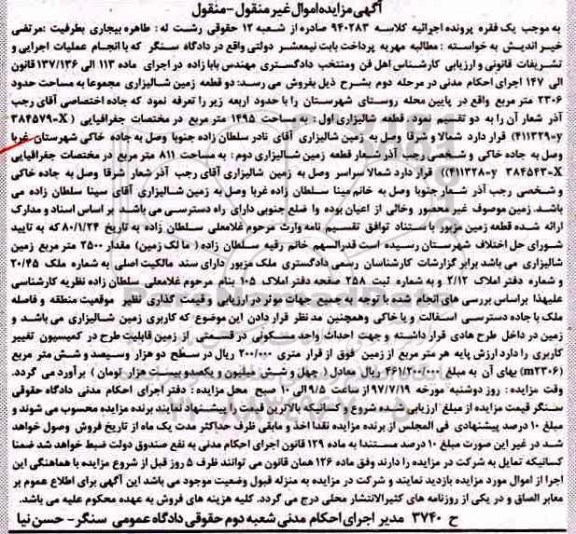 آگهی مزایده اموال غیر منقول - منقول
به موجب یک فقره پرونده اجرائیه کلاسه ۹۴۰۲۸۳ صادره از شعبه ۱۲ حقوقی رشت له : طاهره بیجاری بطرفیت :مرتضی
خیر اندیش به خواسته : مطالبه مهریه پرداخت بابت نیمعشر دولتی واقع در دادگاه سنگر که با انجام عملیات اجرایی و
تشریفات قانونی و ارزیابی کارشناس اهل فن ومنتخب دادگستری مهندس بابا زاده در اجرای ماده ۱۱۳ الی ۱۳۷/۱۳۶ قانون
الی ۱۴۷ اجرای احکام مدنی در مرحله دوم بشرح ذیل بفروش می رسد: دو قطعه زمین شالیزاری مجموعا به مساحت حدود
۲۳۰۶ متر مربع واقع در پایین محله روستای شهرستان را با حدود اربعه زیر را تعرفه نمود که جاده اختصاصی آقای رجب
آذر شعار آن را به دو تقسیم نمود. قطعه شالیزاری اول : به مساحت ۱۴۹۵ متر مربع در مختصات جغرافیایی (۳۸۴۵۷۹۰X
۴۱۱۳۲۹۰=y) قرار دارد شمالا و شرقا وصل به زمین شالیزاری آقای نادر سلطان زاده جنوبا وصل به جاده خاکی شهرستان غربا
وصل به جاده خاکی و شخصی رجب آذر شعار قطعه زمین شالیزاری دوم : به مساحت ۸۱۱ متر مربع در مختصات جغرافیایی
(۴۱۱۳۲۸۰=y ۳۸۴۵۴۳۰X) قرار دارد شمالا سراسر وصل به زمین شالیزاری آقای رجب آذر شعار شرقا وصل به جاده خاکی
و شخصی رجب آذر شعار جنوبا وصل به خانم مینا سلطان زاده غربا وصل به زمین شالیزاری آقای سینا سلطان زاده می
باشد. زمین موصوف غیر محصور وخالی از اعیان بوده وا ضلع جنوبی دارای راه دسترسی می باشد. بر اساس اسناد و مدارک
ارائه شده قطعه زمین مزبور با ستناد توافق تقسیم نامه وارث مرحوم غلامعلی سلطان زاده به تاریخ ۸۰/۱/۲۴ که به تایید
شورای حل اختلاف شهرستان رسیده است قدرالسهم خانم رقیه سلطان زاده ( نا لک زمین) مقدار ۲۵۰۰ متر مربع زمین
شالیزاری می باشد برابر گزارشات کارشناسان رسمی دادگستری ملک مزبور دارای سند مالکیت اصلی به شماره ملک ۲۰/۴۵
و شماره دفتر املاک ۲/۱۲ و به شماره ثبت ۲۵۸ صفحه دفتر املاک ۱۰۵ بنام مرحوم غلامعلی سلطان زاده نظریه کارشناسی
علیهذا براساس بررسی های انجام شده با توجه به جمیع جهات موثر در ارزیابی و قیمت گذاری نظیر موقعیت منطقه و فاصله
ملک با جاده دسترسی اسفالت و یا خاکی وهمچنین مد نظر قرار دادن این موضوع که کاربری زمین شالیزاری می باشد و
زمین در داخل طرح هادی قرار داشته و جهت احداث واحد مسکونی در قسمتی از زمین قابلیت طرح در کمیسیون تغییر
کاربری را دارد ارزش پایه هر متر مربع از زمین فوق از قرار متری ۲۰۰/۰۰۰ ریال در سطح دو هزار وسیصد و شش متر مربع
(۲۳۰۶m) بهای آن به مبلغ ۴۶۱/۲۰۰/۰۰۰ ریال معادل ( چهل و شش میلیون و یکصد و بیست هزار تومان ) برآورد می گردد.
وقت مزایده : روز دوشنبه مورخه ۹۷/۷/۱۹ از ساعت ۹/۵ الی ۱۰ صبح محل مزایده : دفتر اجرای احکام مدنی دادگاه حقوقی
سنگر قیمت مزایده از مبلغ ارزیابی شده شروع و کسانیکه بالاترین قیمت را پیشنهاد نمایند برنده مزایده محسوب می شوند و
مبلغ ۱۰ درصد پیشنهادی فی المجلس از برنده مزایده نقدا اخذ و مابقی ظرف حداکثر مدت یک ماه از تاریخ فروش وصول خواهد
شد در غیر این صورت مبلغ ۱۰ درصد مستندا به ماده ۱۲۹ قانون اجرای احکام مدنی به نفع صندوق دولت ضبط خواهد شد ضمنا
کسانیکه تمایل به شرکت در مزایده را دارند وفق ماده ۱۲۶ همان قانون می توانند ظرف ۵ روز قبل از شروع مزایده با هماهنگی این
اجرا از اموال مورد مزایده بازدید نمایند و شرکت در مزایده به منزله قبول وضعیت موجود می باشد این آگهی برای اطلاع عموم بر
معابر الصاق و در یکی از روزنامه های کثیرالانتشار محلی درج می گردد. کلیه هزینه های فروش به عهده محکوم علیه می باشد.
ح ۳۷۴۰ مدیر اجرای احکام مدنی شعبه دوم حقوقی دادگاه عمومی سنگر- حسن نیا